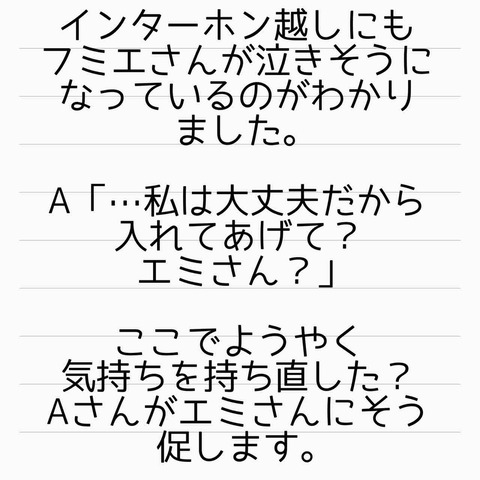 インターホン越しにも
フミエさんが泣きそうに
なっているのがわかり
ました。
A「…私は大丈夫だから
入れてあげて？
エミさん？」
ここでようやく
気持ちを持ち直した？
Aさんがエミさんにそう
促します。